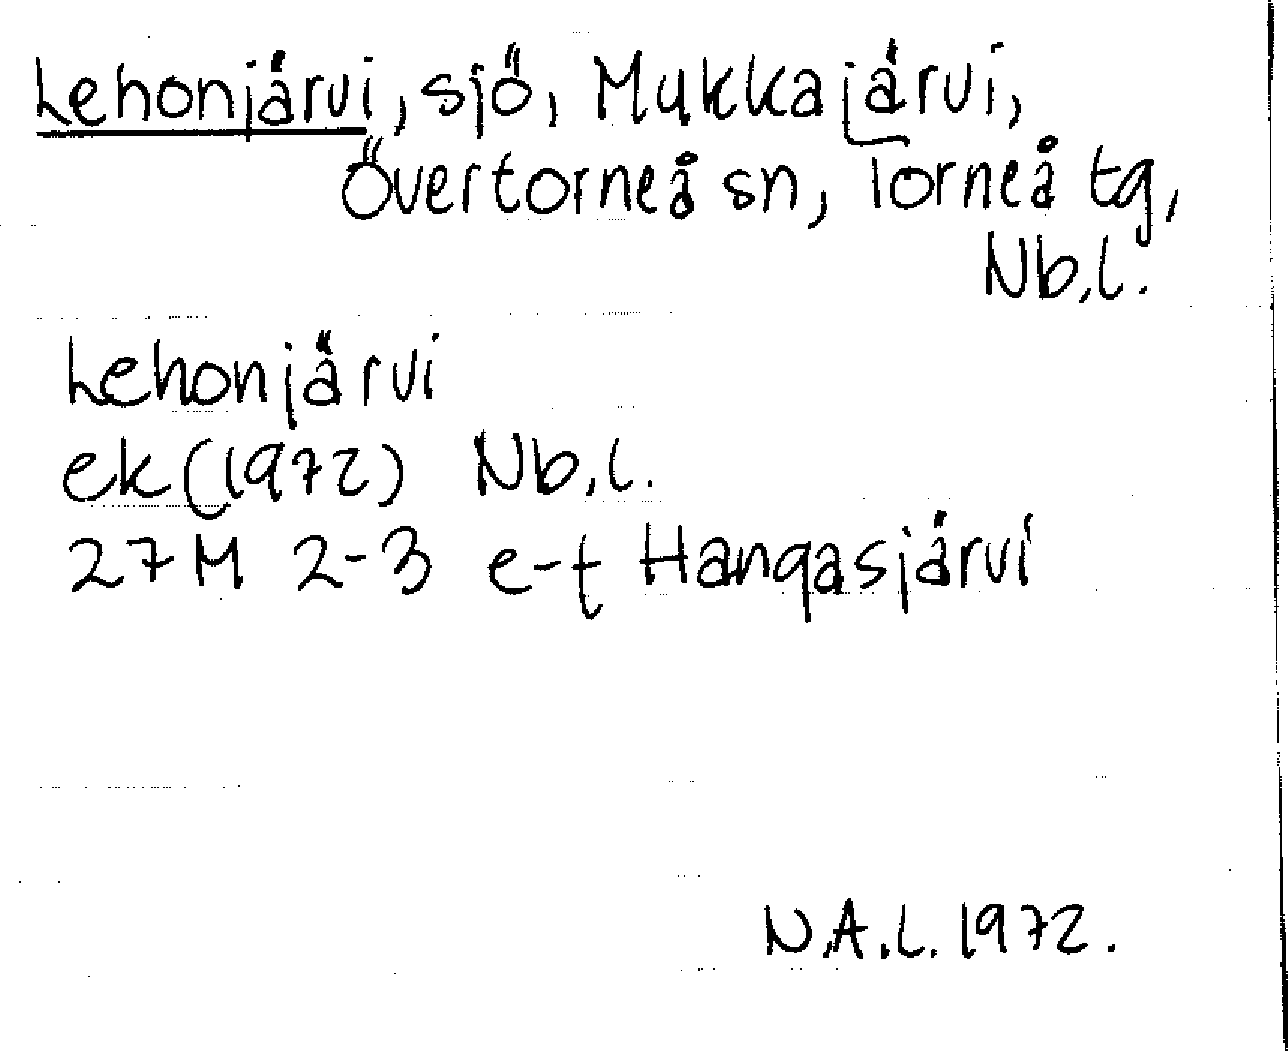 Lehonjärvi, sjö, Mukkajärvi,
Övertorneå sn, Torneå tg,
Nb.l.
Lehonjärvi
ek (1972) Nb.l.
27M 2-3 e-f Hangasjärvi
N.A.L. 1972.